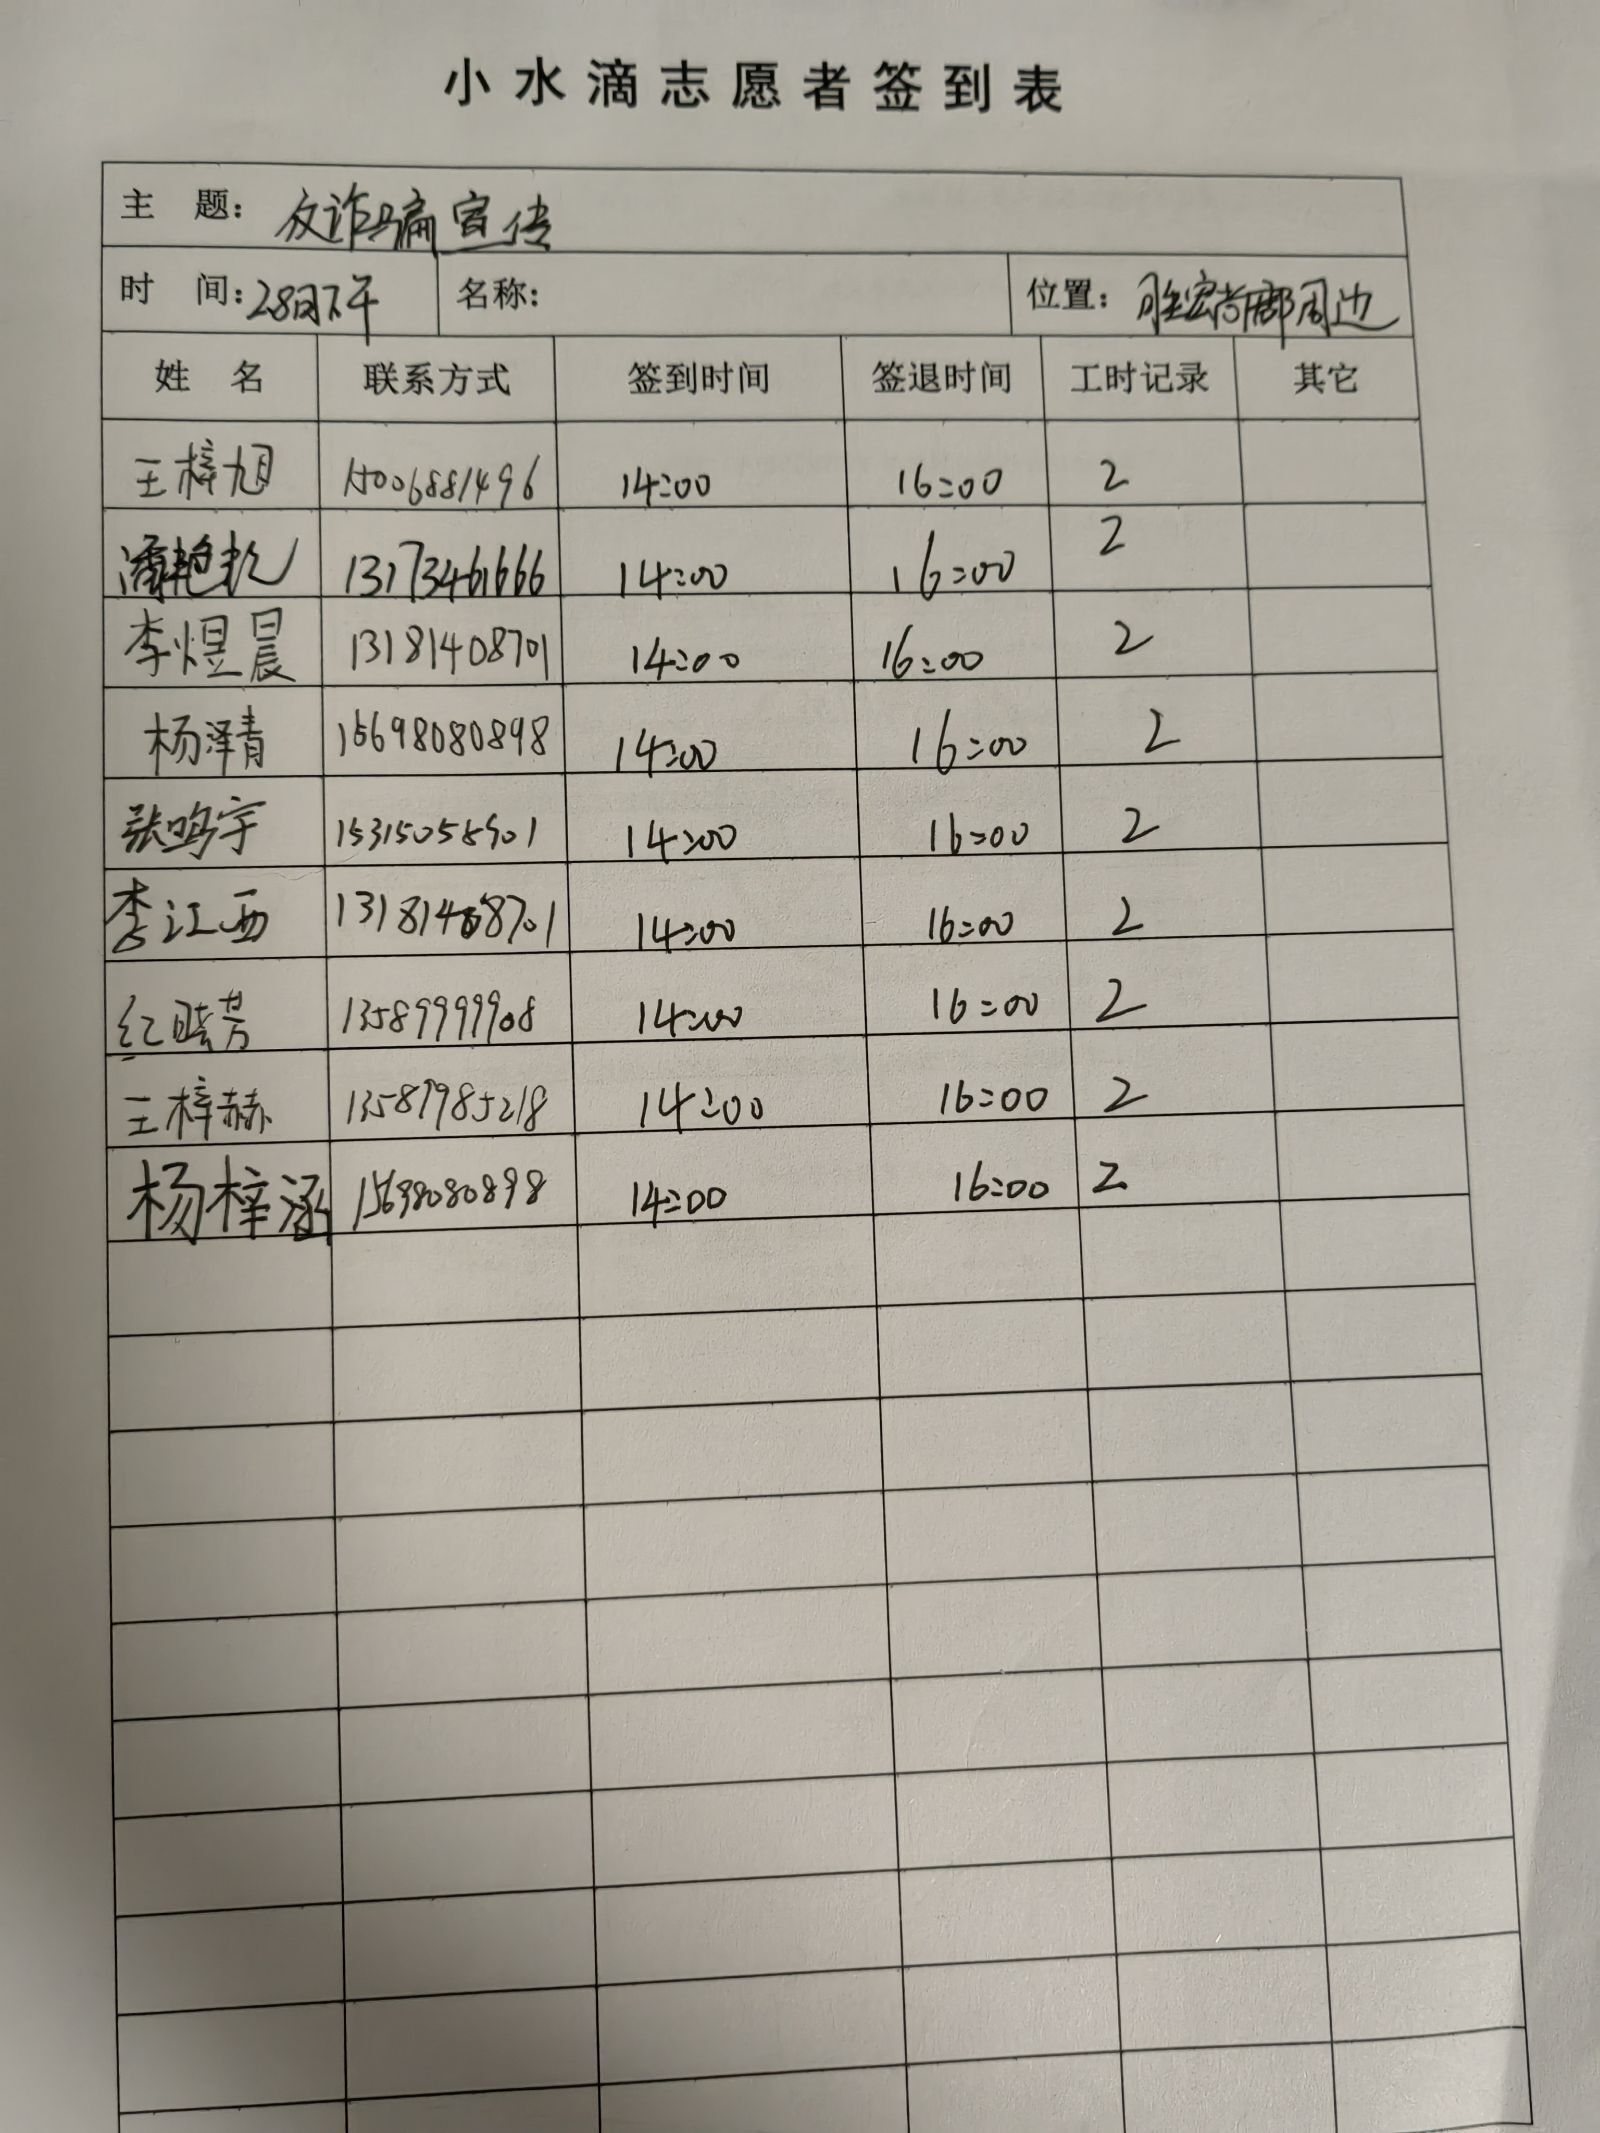 小水滴志愿者签到表
主 题: 反诈骗宣传
时 间: 28日下午 名称: 位置: 胜宏尚郡周边
姓 名 联系方式 签到时间 签退时间 工时记录 其它
王梓旭 15006881496 14:00 16:00 2
潘艳 13173461666 14:00 16:00 2
李煜晨 13181408701 14:00 16:00 2
杨泽青 15698080898 14:00 16:00 2
张鸣宇 15315058901 14:00 16:00 2
李江西 13181408701 14:00 16:00 2
红晓芳 13589999908 14:00 16:00 2
王梓赫 13589985218 14:00 16:00 2
杨梓涵 15698080898 14:00 16:00 2